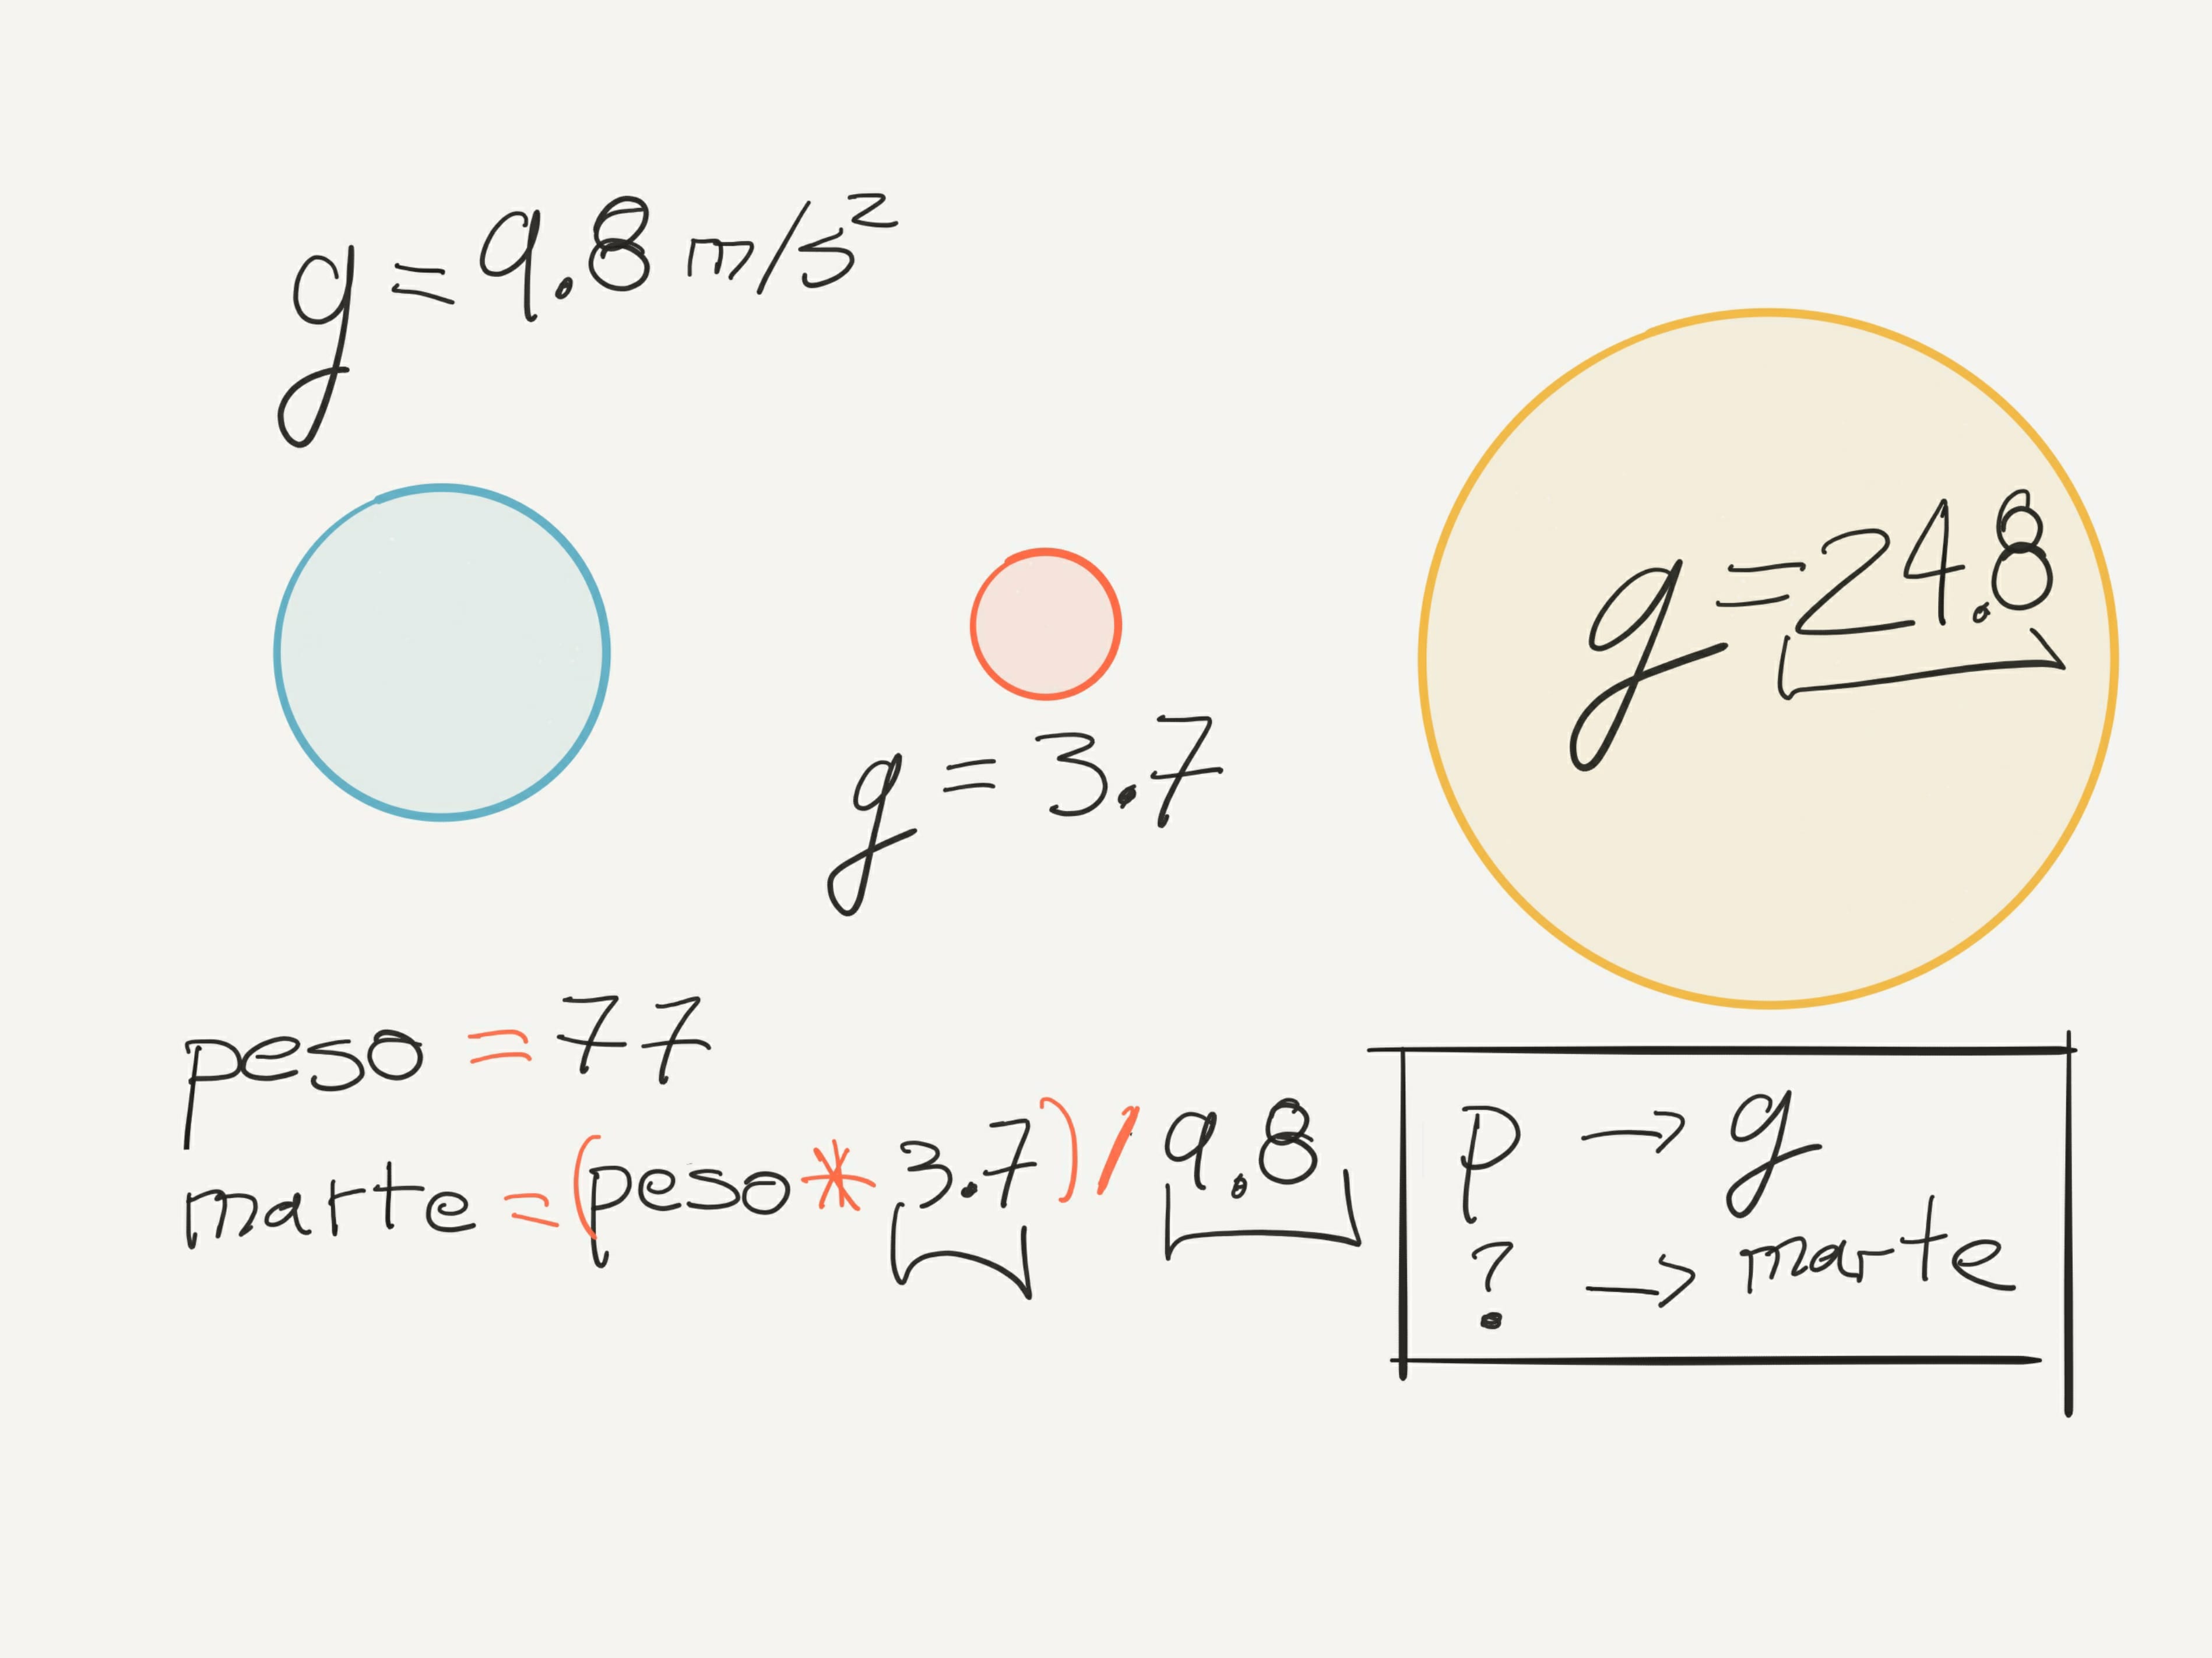 g = 9.8 m/s²
g = 24.8
g = 3.7
peso = 77
marte = (peso * 3.7) / 9.8
p → g
? → marte